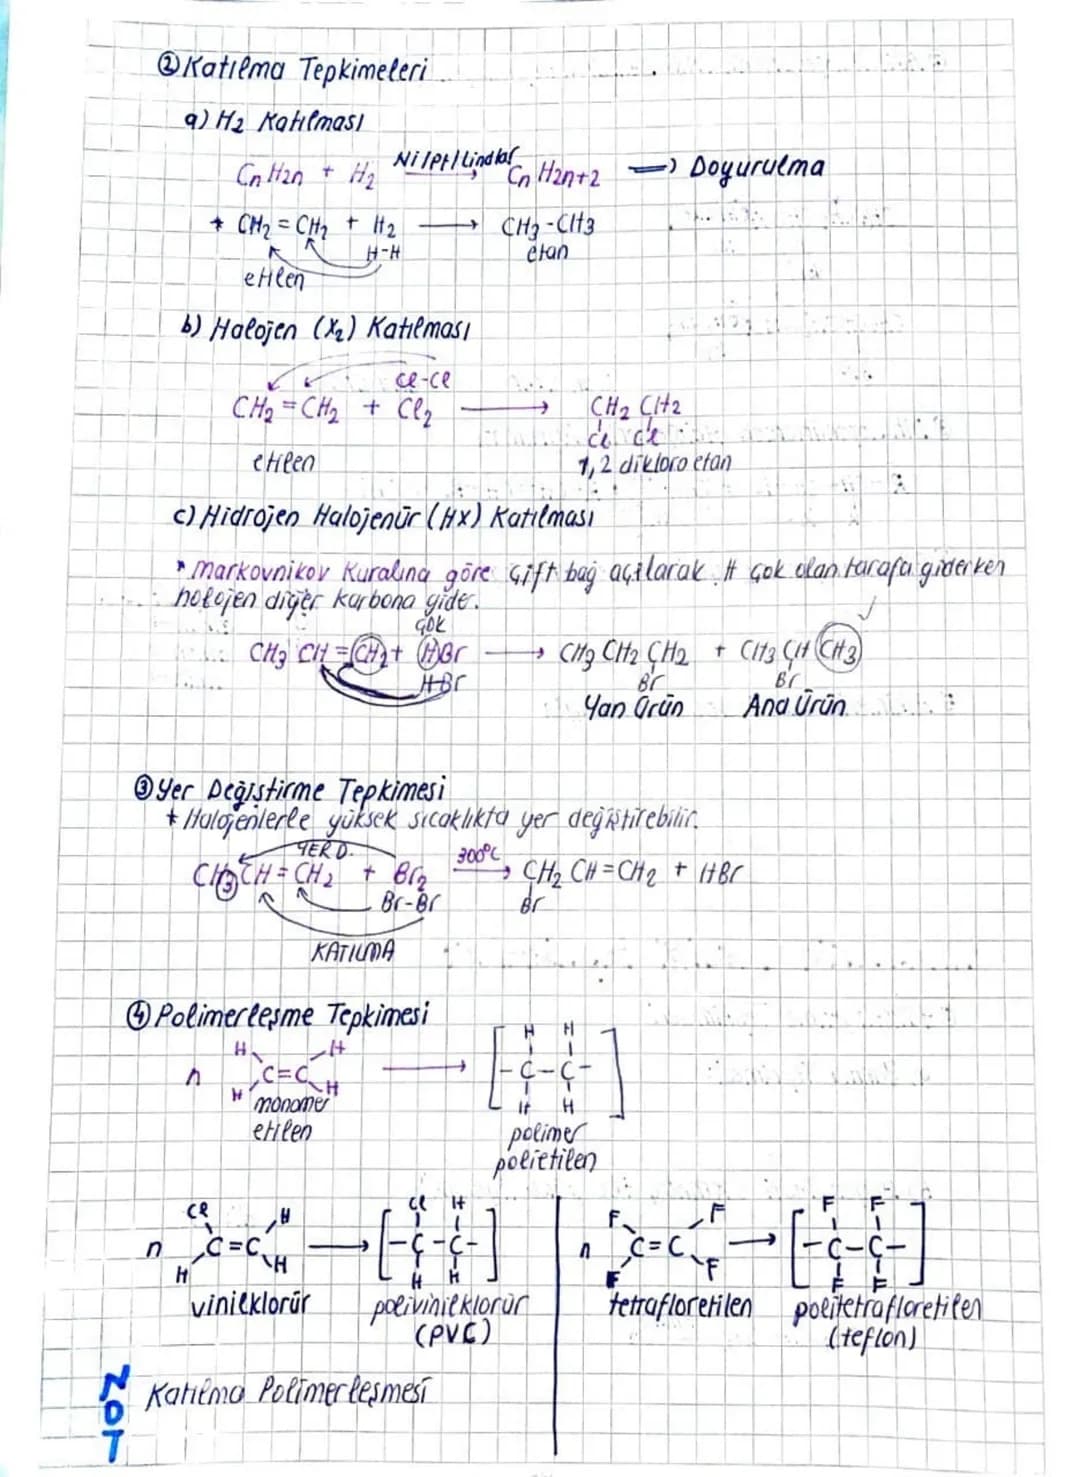 ② Katılma Tepkimeleri
a) H2 Katılması
CnH2n + H2 Ni/Pt/Lindlar CnH2n+2 → Doyurulma
* CH2 = CH2 + H2 → CH3-CH3
H-H
etilen etan
b) Halojen (X2) Katılması
Cl-Cl
CH2 = CH2 + Cl2 → CH2 CH2
Cl Cl
etilen 1,2 dikloro etan
c) Hidrojen Halojenür (HX) Katılması
* Markovnikov Kuralına göre çift bağ açılarak H çok olan tarafa giderken
halojen diğer karbona gider.
çok
CH3 CH = CH2 + HBr → CH3 CH2 CH2 + CH3 CH CH3
H-Br Br Br
Yan Ürün Ana Ürün
③ Yer Değiştirme Tepkimesi
* Halojenlerle yüksek sıcaklıkta yer değiştirebilir.
YER D. 300°C
CH3 CH = CH2 + Br2 → CH2 CH = CH2 + HBr
Br-Br Br
KATILMA
④ Polimerleşme Tepkimesi
H H H H
n C=C → [-C-C-]
H H H H
monomer polimer
etilen polietilen
Cl H Cl H F F F F
n C=C → [-C-C-] n C=C → [-C-C-]
H H H H F F F F
vinilklorür polivinilklorür tetrafloretilen politetrafloretilen
(PVC) (teflon)
NOT Katılma Polimerleşmesi